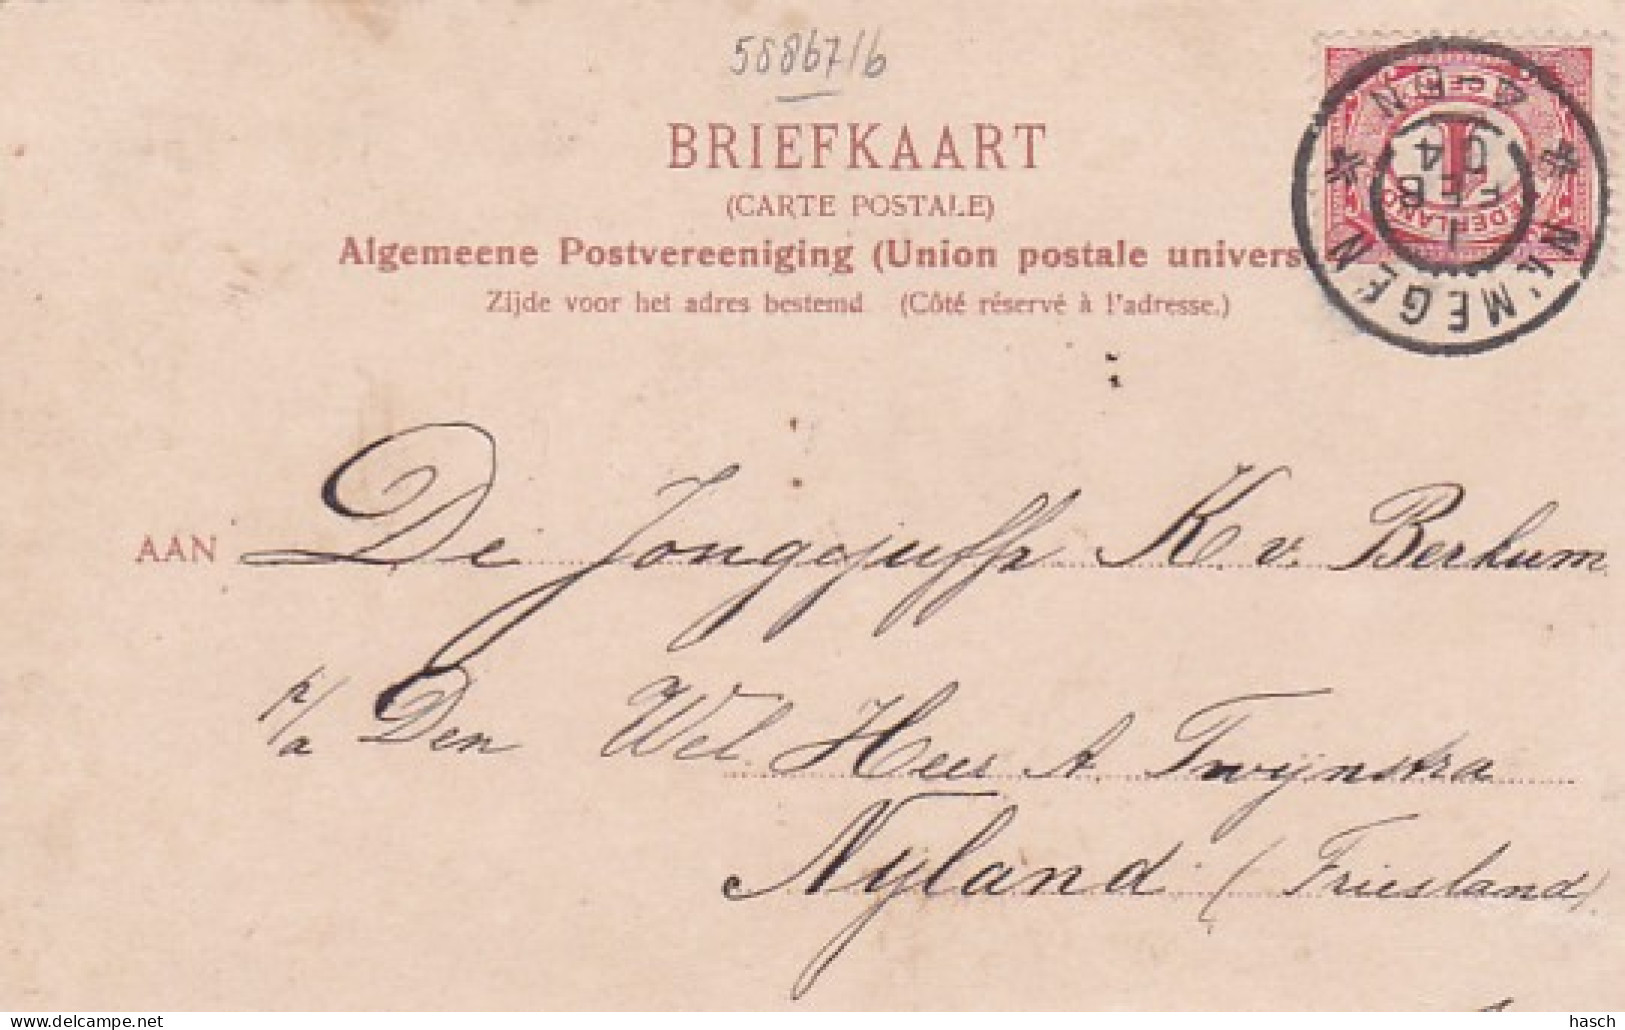 58867/6
BRIEFKAART
(CARTE POSTALE)
Algemeene Postvereeniging (Union postale univers
Zijde voor het adres bestemd (Côté réservé à l'adresse.)
NIJMEGEN
4-5N
1
FEB
04
NEDERLAND
1
AAN De Jongejuffr K. v. Berkum
p/a Den Wel. Heer A. Twijnstra
Nyland (Friesland)
hasch